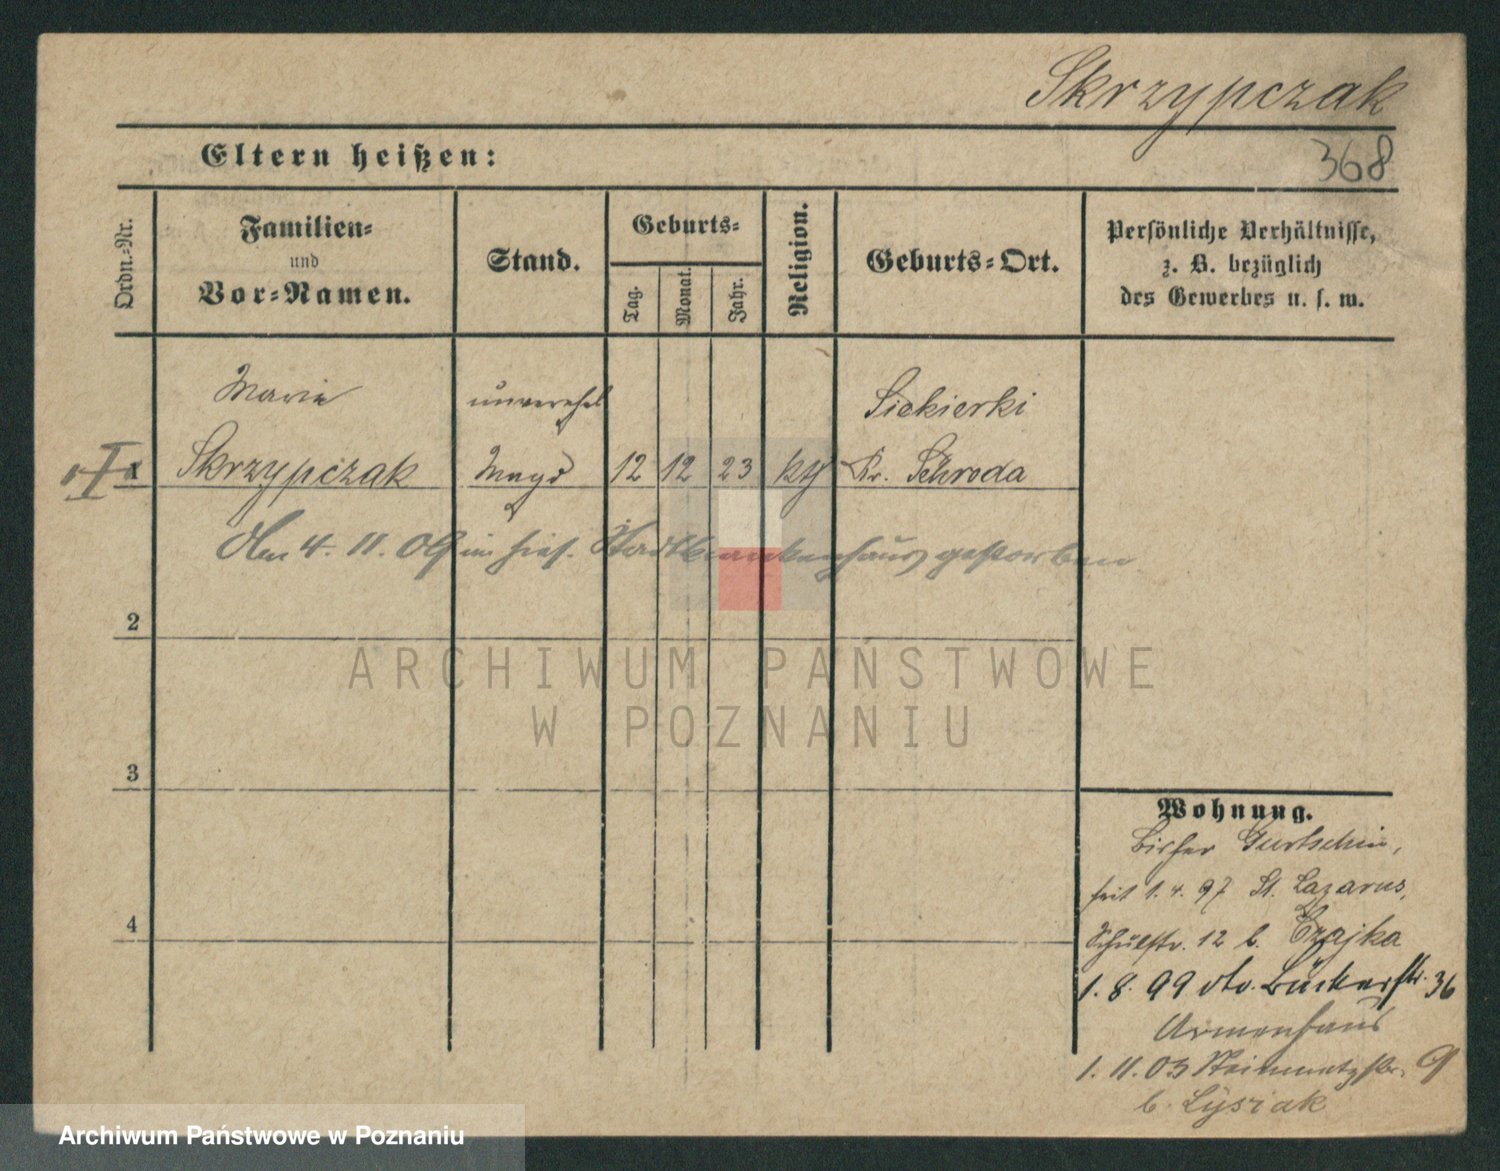 Skrzypczak
Eltern heißen:
368
Ordn.-Nr.
Familien-
und
Vor-Namen.
Stand.
Geburts-
Tag.
Monat.
Jahr.
Religion.
Geburts-Ort.
Persönliche Verhältnisse,
z. B. bezüglich
des Gewerbes u. s. w.
Marie unverehel Siekierki
1 Skrzypczak Magd 12 12 23 kth Kr. Schroda
Am 4. 11. 09 im hies. Stadtkrankenhaus gestorben
2
ARCHIWUM PAŃSTWOWE
W POZNANIU
3
Wohnung.
Bisher Gurtschin,
seit 1. 4. 97 St. Lazarus,
4
Schulstr. 12 b. Czajka
1. 8. 99 Bäckerstr. 36
Armenhaus
1. 11. 03 Steinmetzstr. 9
b. Lysiak
Archiwum Państwowe w Poznaniu